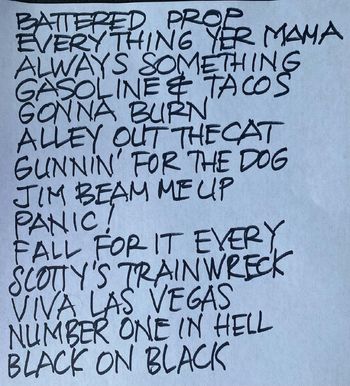 BATTERED PROP
EVERYTHING YER MAMA
ALWAYS SOMETHING
GASOLINE & TACOS
GONNA BURN
ALLEY OUT THE CAT
GUNNIN' FOR THE DOG
JIM BEAM ME UP
PANIC!
FALL FOR IT EVERY
SCOTTY'S TRAINWRECK
VIVA LAS VEGAS
NUMBER ONE IN HELL
BLACK ON BLACK